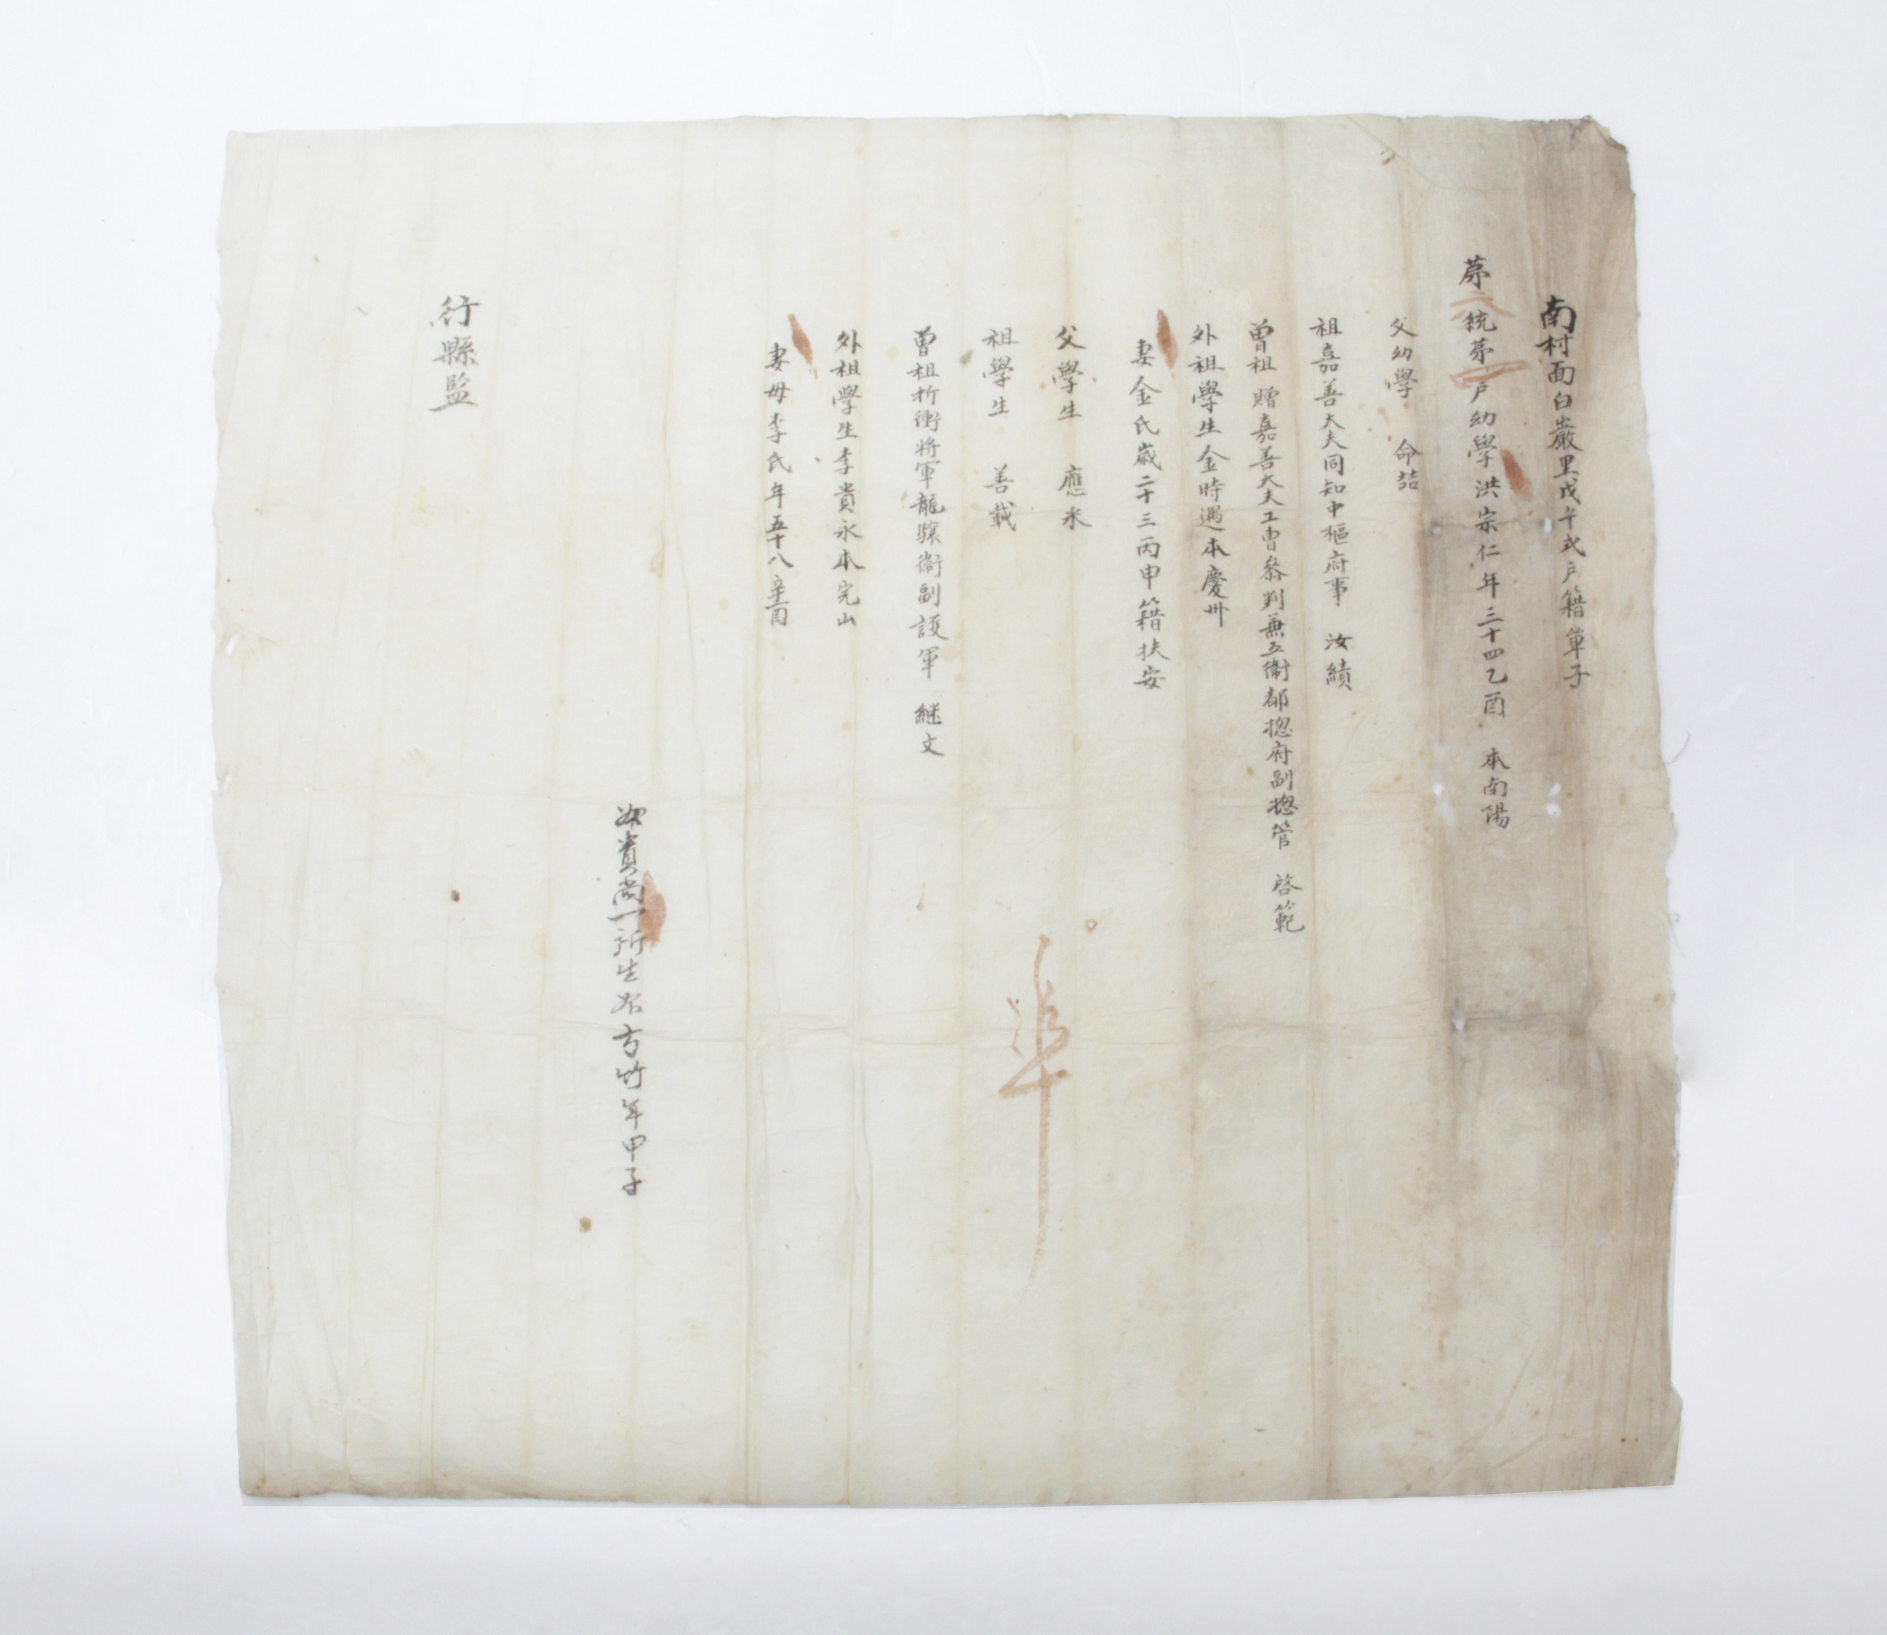 南村面白巖里戊午式戶籍單子
第六統第四戶幼學洪宗仁年三十四乙酉 本南陽
父幼學 命喆
祖嘉善大夫同知中樞府事 汝績
曾祖 贈嘉善大夫工曹叅判兼五衛都摠府副摠管 啓範
外祖學生金時遇本慶州
妻金氏歲二十三丙申籍扶安
父學生 應
祖學生 善載
曾祖折衝將軍龍驤衛副護軍 継文
外祖學生李貴永本完山
妻母李氏年五十八辛酉
準
婢貴尚一所生奴方竹年甲子
行縣監